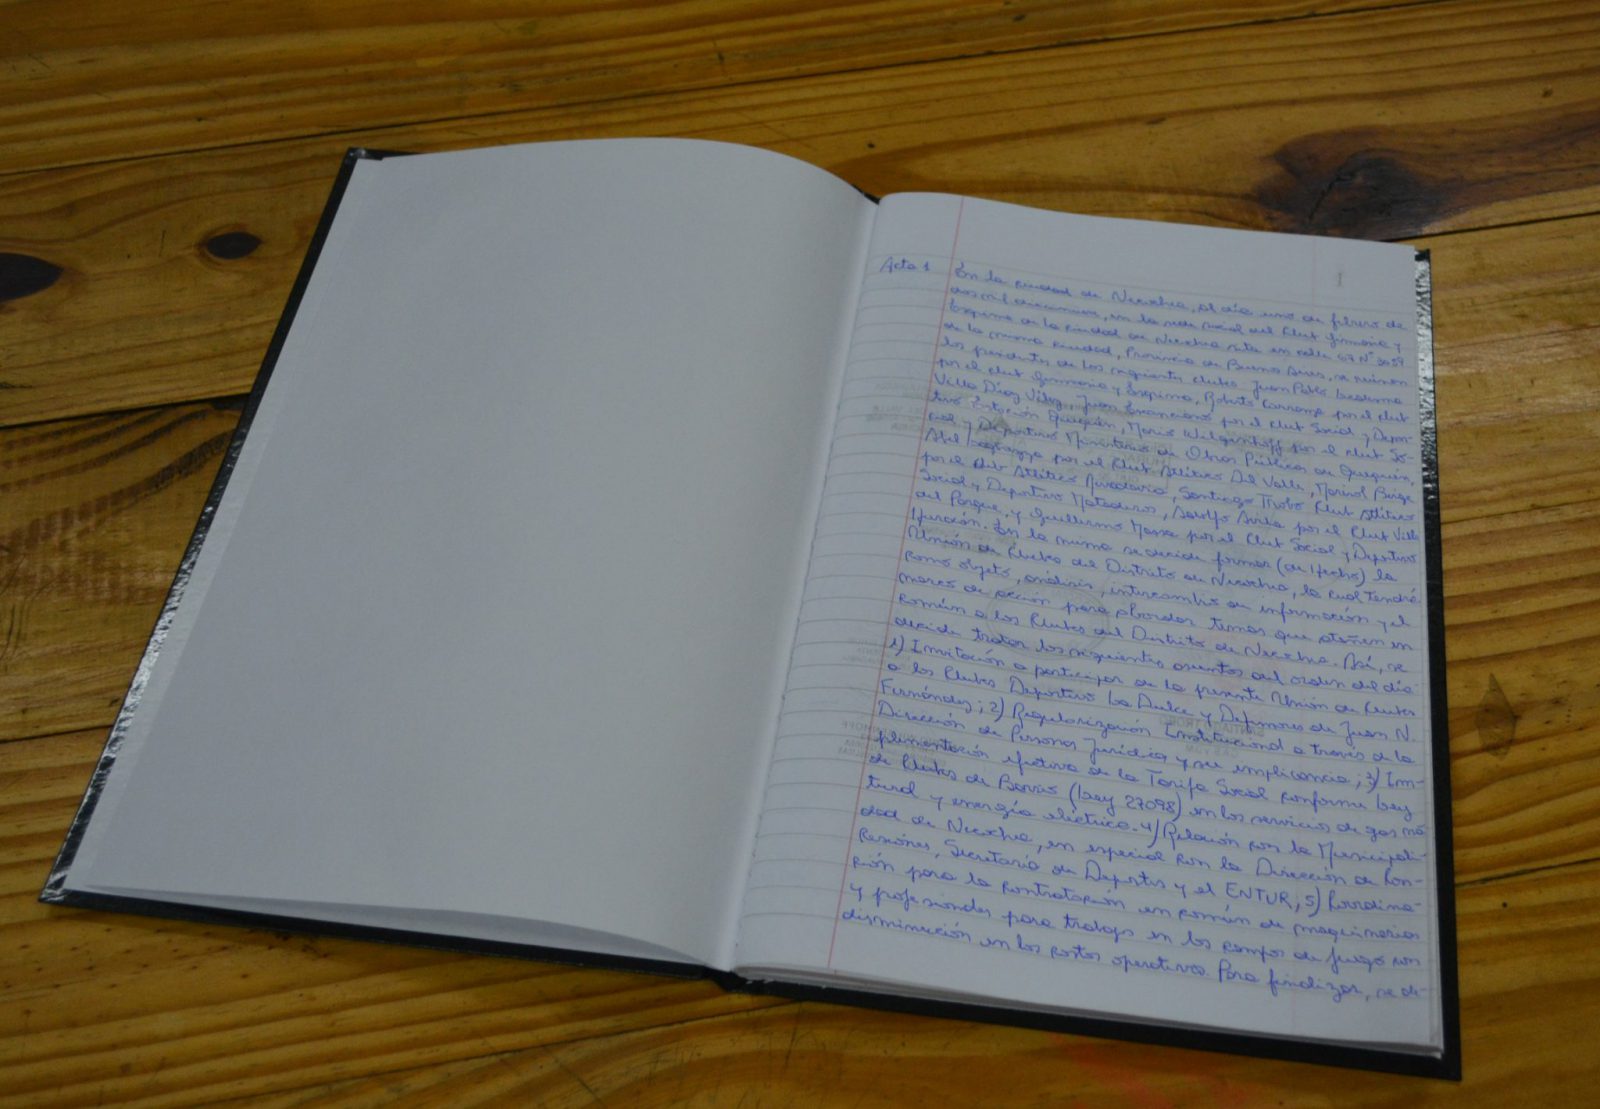 Acta 1 En la ciudad de Necochea, al día uno de febrero de
dos mil diecinueve, en la sede social del Club Gimnasia y
Esgrima de la ciudad de Necochea sita en calle 67 N° 3059
de la misma ciudad, Provincia de Buenos Aires, se reúnen
los presidentes de los siguientes clubes: Juan Pablo
por el club Gimnasia y Esgrima, Roberto por el club
Villa Díaz Vélez, Juan por el club Social y Depor-
tivo Estación Quequén, Mario por el club So-
cial y Deportivo Ministerio de Obras Públicas de Quequén,
Abel por el Club Atlético Del Valle, Marisol
por el club Atlético Rivadavia, Santiago Trobo Club Atlético
Social y Deportivo Mataderos, Adolfo Avila por el Club Villa
del Parque, y Guillermo Massa por el Club Social y Deportivo
Ejecución. En la misma se decide formar (de Hecho) la
Unión de Clubes del Distrito de Necochea, la cual tendrá
como objeto, análisis, intercambio de información y el
marco de acción para abordar temas que atañen en
común a los Clubes del Distrito de Necochea. Así, se
decide tratar los siguientes asuntos del orden del día:
1) Invitación a participar de la presente Unión de Clubes
a los Clubes Deportivo La Dulce y Defensores de Juan N.
Fernández; 2) Regularización Institucional a través de la
Dirección de Persona Jurídica y su implicancia; 3) Im-
plementación efectiva de la Tarifa Social conforme Ley
de Clubes de Barrio (Ley 27098) en los servicios de gas na-
tural y energía eléctrica. 4) Relación con la Municipali-
dad de Necochea, en especial con la Dirección de Con-
cesiones, Secretaría de Deportes y el ENTUR; 5) Coordina-
ción para la contratación en común de maquinarias
y profesionales para trabajo en los campos de juego con
disminución en los costos operativos. Para finalizar, se de-